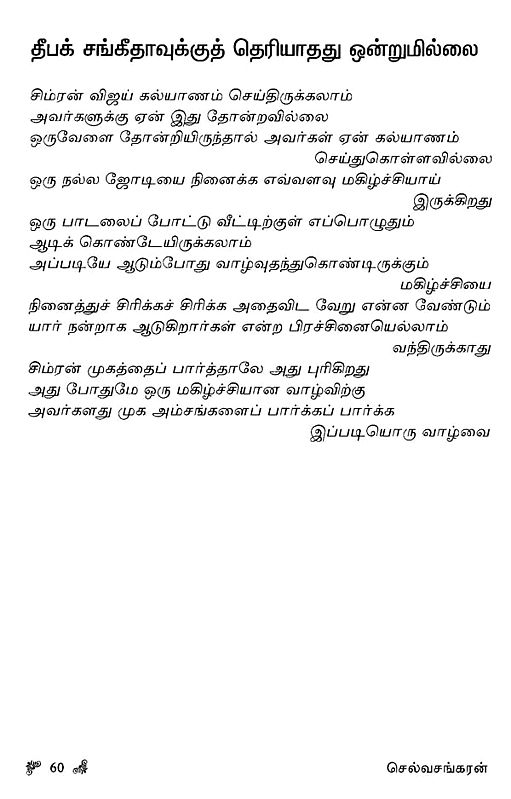 தீபக் சங்கீதாவுக்குத் தெரியாதது ஒன்றுமில்லை
சிம்ரன் விஜய் கல்யாணம் செய்திருக்கலாம்
அவர்களுக்கு ஏன் இது தோன்றவில்லை
ஒருவேளை தோன்றியிருந்தால் அவர்கள் ஏன் கல்யாணம்
செய்துகொள்ளவில்லை
ஒரு நல்ல ஜோடியை நினைக்க எவ்வளவு மகிழ்ச்சியாய்
இருக்கிறது
ஒரு பாடலைப் போட்டு வீட்டிற்குள் எப்பொழுதும்
ஆடிக் கொண்டேயிருக்கலாம்
அப்படியே ஆடும்போது வாழ்வுதந்துகொண்டிருக்கும்
மகிழ்ச்சியை
நினைத்துச் சிரிக்கச் சிரிக்க அதைவிட வேறு என்ன வேண்டும்
யார் நன்றாக ஆடுகிறார்கள் என்ற பிரச்சினையெல்லாம்
வந்திருக்காது
சிம்ரன் முகத்தைப் பார்த்தாலே அது புரிகிறது
அது போதுமே ஒரு மகிழ்ச்சியான வாழ்விற்கு
அவர்களது முக அம்சங்களைப் பார்க்கப் பார்க்க
இப்படியொரு வாழ்வை
60 செல்வசங்கரன்